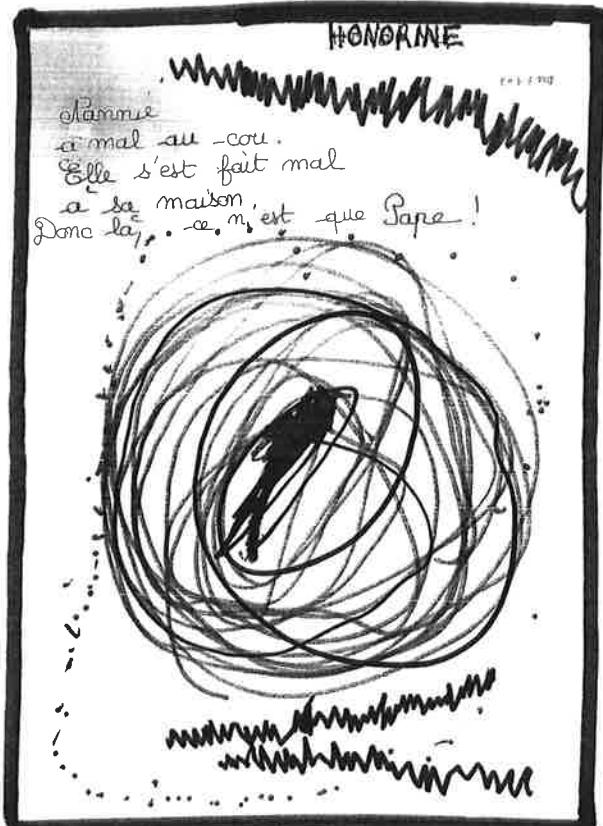 HONORINE
Nannie
a mal au cou.
Elle s'est fait mal
à sa maison.
Donc là, ce n'est que Pape !